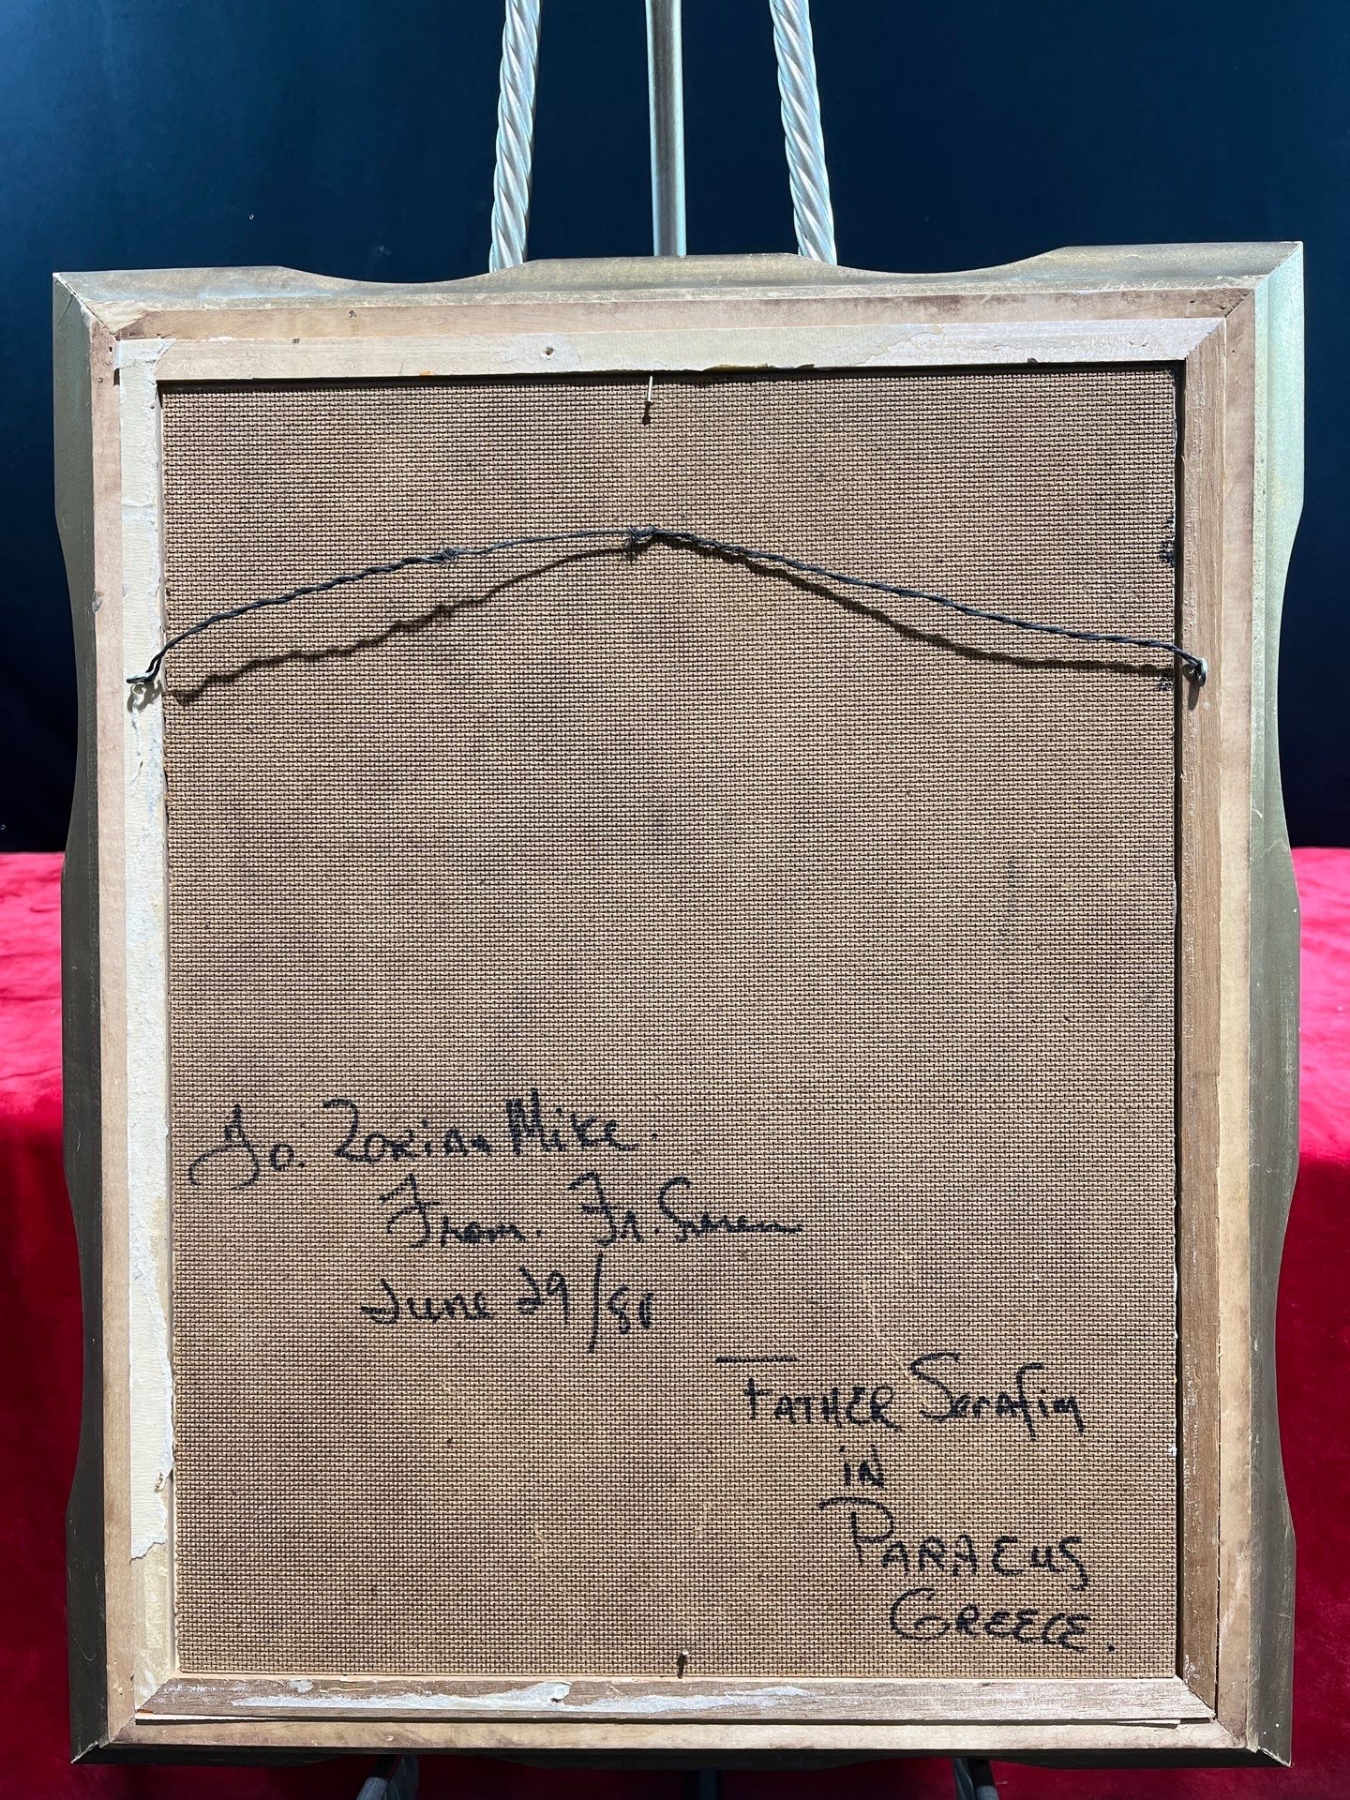 To: Zorian Mike.
From. Fr.
June 29/80
FATHER Serafim
iN
PARACUS
GREECE.